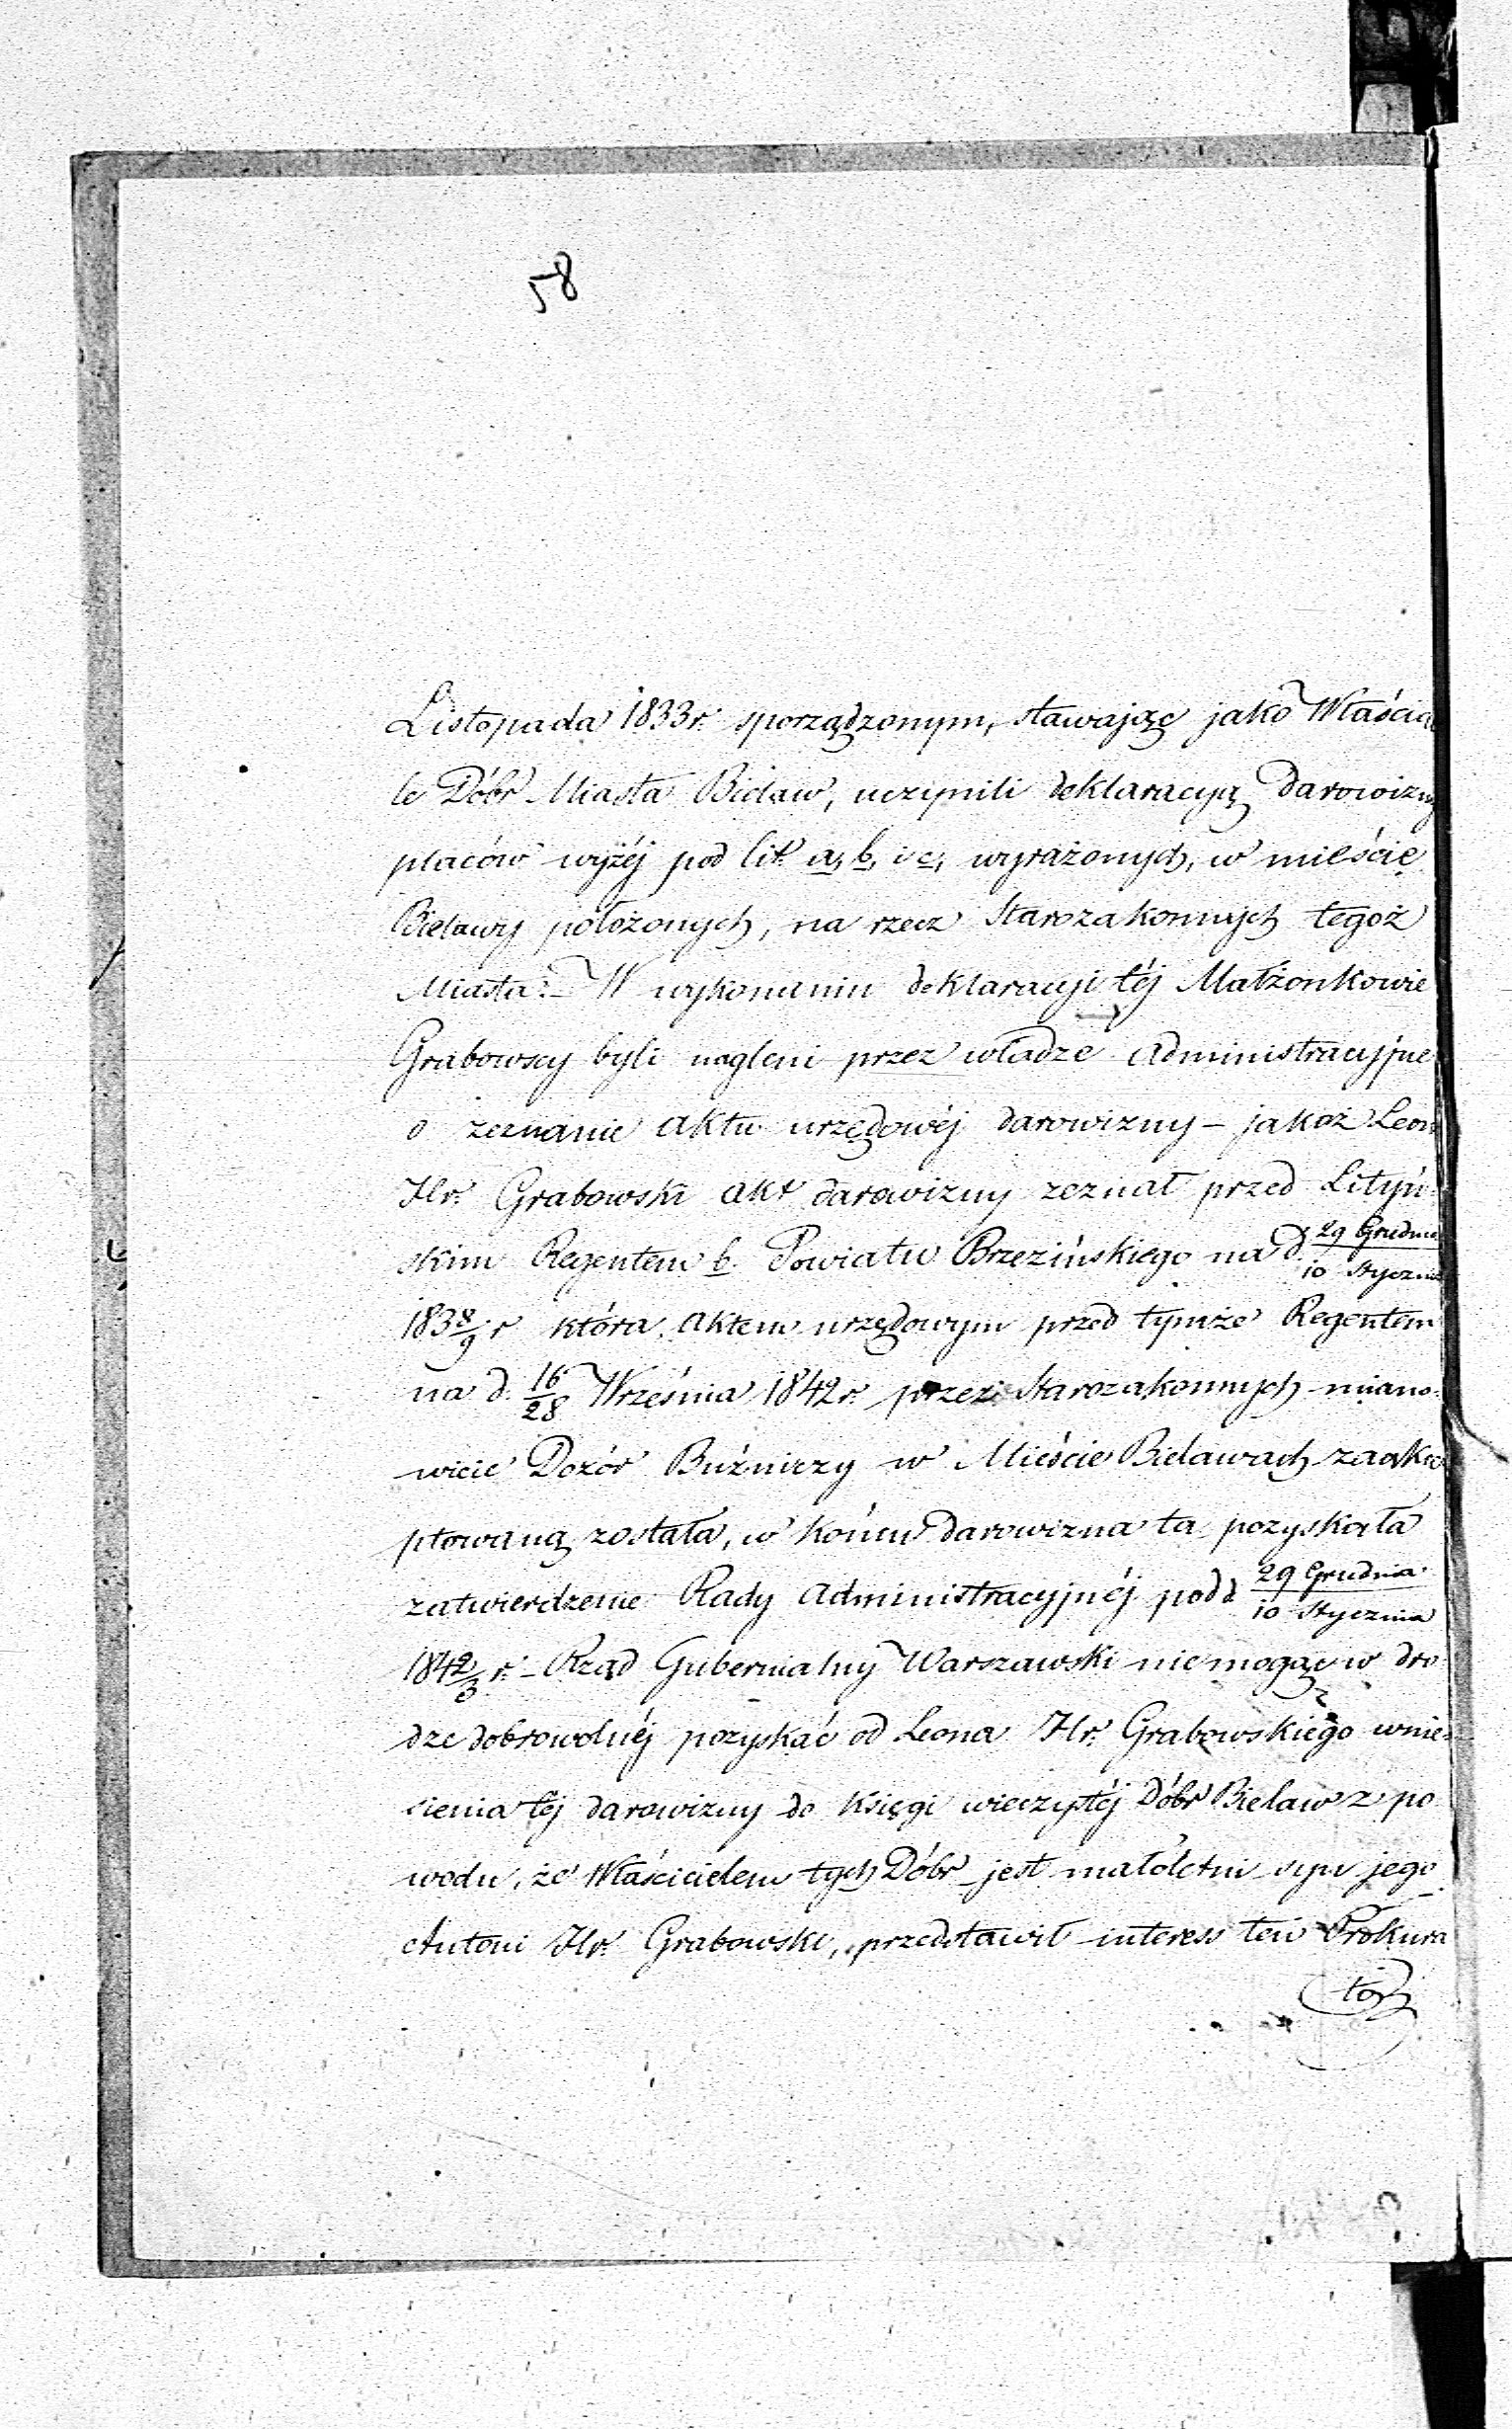 58
Listopada 1833 r. sporządzonym, stawając jako Właścicie
le Dóbr Miasta Bielaw, uczynili deklaracyą darowizny
placów wyżéj pod lit. a, b, i c, wyrażonych, w mieście
Bielawy położonych, na rzecz Starozakonnych tegoż
Miasta. – W wykonaniu deklaracyi téj Małżonkowie
Grabowscy byli nagleni przez władze administracyjne
o zeznanie aktu urzędowéj darowizny – jakoż Leon
Hr. Grabowski akt darowizny zeznał przed Lityń-
skim Regentem b. Powiatu Brzezińskiego na d. 29 Grudnia / 10 Stycznia
1838/9 r która aktem urzędowym przed tymże Regentem
na d. 16/28 Września 1842 r. przez Starozakonnych miano-
wicie Dozór Bużniczy w Mieście Bielawach zaakce
ptowaną została, w końcu darowizna ta pozyskała
zatwierdzenie Rady Administracyjnéj pod d 29 Grudnia / 10 Stycznia
1842/3 r. – Rząd Gubernialny Warszawski nie mogąc w dro-
dze dobrowolnéj pozyskać od Leona Hr. Grabowskiego wnie-
sienia téj darowizny do księgi wieczystéj Dóbr Bielaw z po
wodu, że Właścicielem tych Dóbr jest małoletni syn jego
Antoni Hr. Grabowski, przedstawił interess ten Prokura
tory